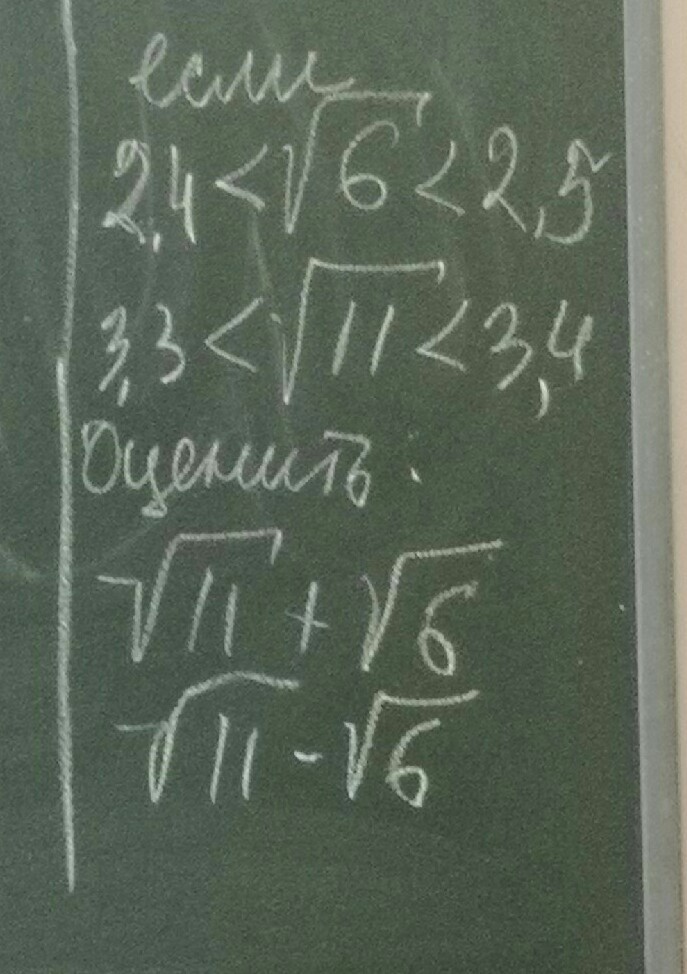 если
2,4 < √6 < 2,5
3,3 < √11 < 3,4
Оценить:
√11 + √6
√11 - √6